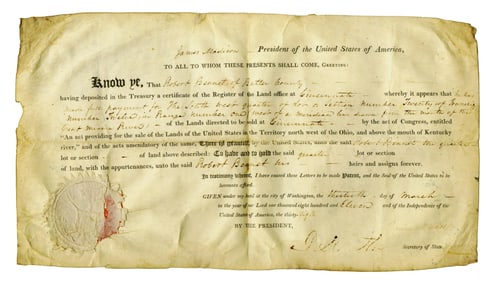 James Madison President of the United States of America,
TO ALL TO WHOM THESE PRESENTS SHALL COME, GREETING:
Know ye, That Robert Bennett of Butler County —
having deposited in the Treasury a certificate of the Register of the Land office at Cincinnati whereby it appears that he has
made full payment for The South west quarter of lot or section number Twenty of Township
number Third, in Range number one west of a meridian line drawn from the mouth of the
Great Miami River — of the Lands directed to be sold at Cincinnati by the act of Congress, entitled
"An act providing for the sale of the Lands of the United States in the Territory north west of the Ohio, and above the mouth of Kentucky
river," and of the acts amendatory of the same, There is granted, by the United States, unto the said Robert Bennett the quarter
lot or section — of land above described: To have and to hold the said quarter lot or section
of land, with the appurtenances, unto the said Robert Bennett his — heirs and assigns forever.
In testimony whereof, I have caused these Letters to be made Patent, and the Seal of the United States to be
hereunto affixed.
GIVEN under my hand at the city of Washington, the day of March —
in the year of our Lord one thousand eight hundred and Eleven and of the Independence of the
United States of America, the thirty fifth
BY THE PRESIDENT,
Secretary of State.